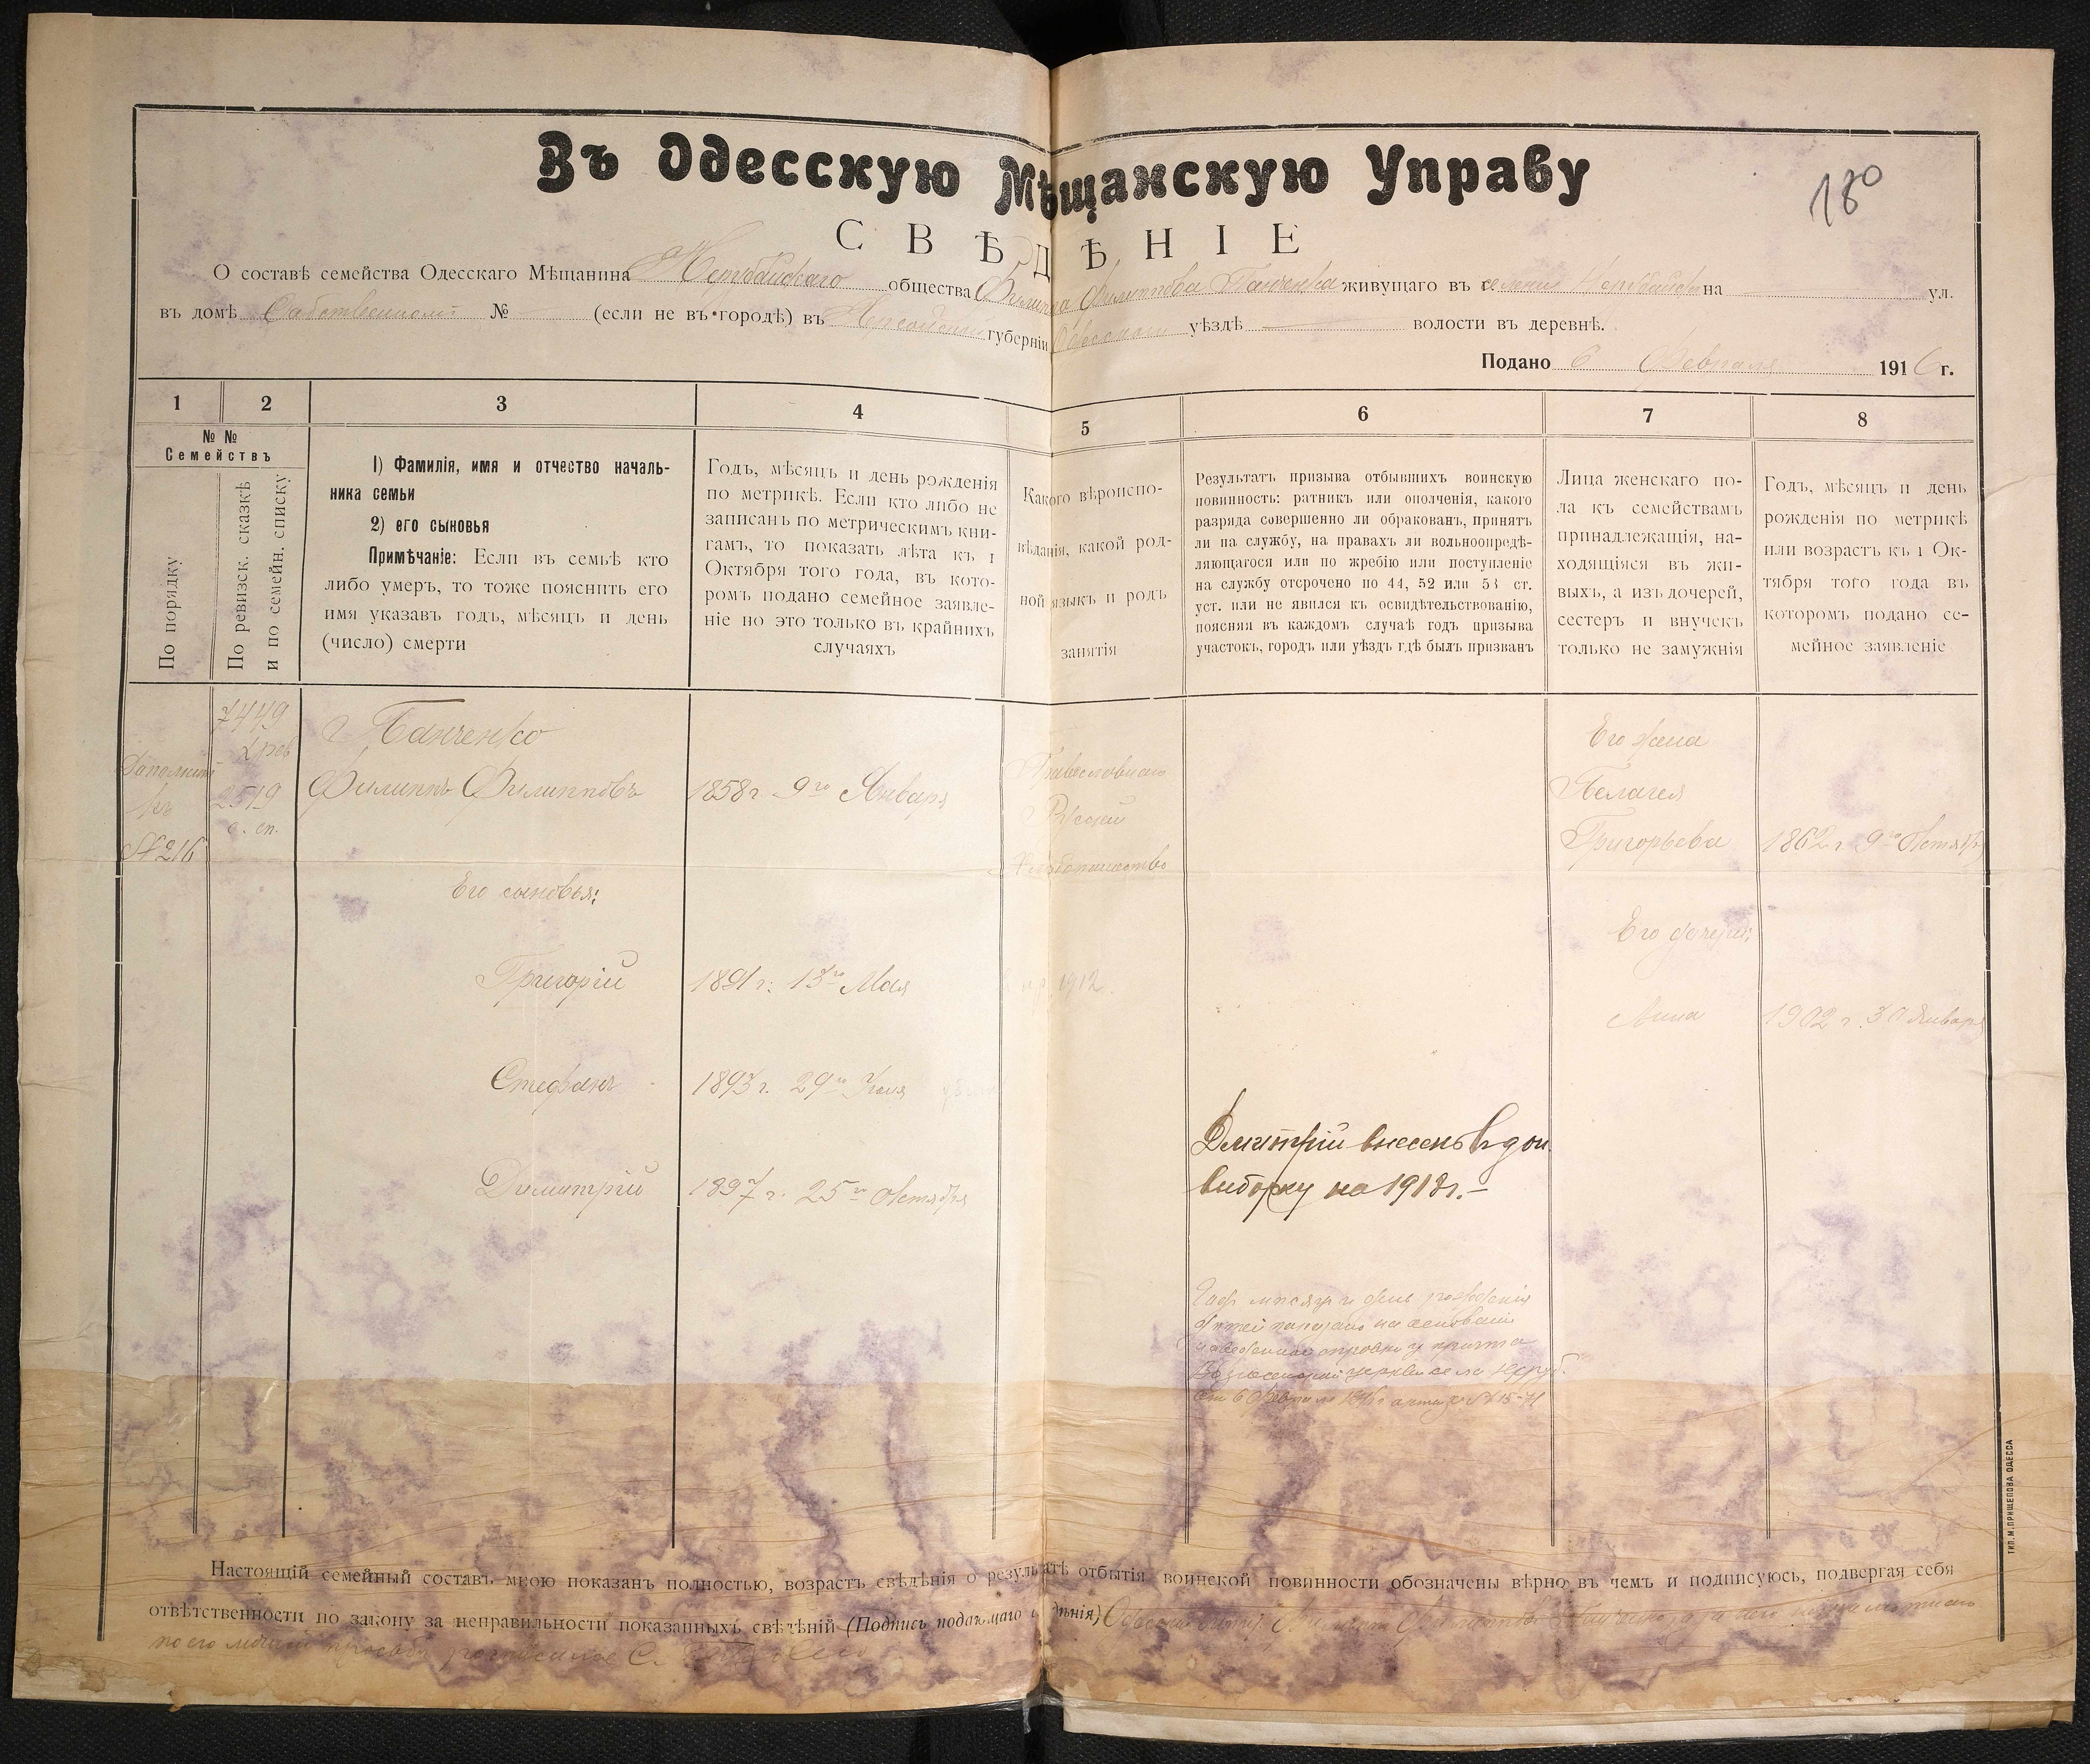 Въ Одесскую Мѣщанскую Управу
180
СВѢДѢНІЕ
О составѣ семейства Одесскаго Мѣщанина Нерубайскаго общества Филиппа Филиппова Панченка живущаго въ селеніи Нерубайскомъ на ул.
въ домѣ Собственномъ № (если не въ городѣ) въ Херсонской губерніи Одесскомъ уѣздѣ волости въ деревнѣ.
Подано 6 Февраля 1916 г.
1 2 3 4 5 6 7 8
№ №
Семействъ
По порядку
По ревизск. сказкѣ
и по семейн. списку
1) Фамилія, имя и отчество началь-
ника семьи
2) его сыновья
Примѣчаніе: Если въ семьѣ кто
либо умеръ, то тоже пояснить его
имя указавъ годъ, мѣсяцъ и день
(число) смерти
Годъ, мѣсяцъ и день рожденія
по метрикѣ. Если кто либо не
записанъ по метрическимъ кни-
гамъ, то показать лѣта къ 1
Октября того года, въ кото-
ромъ подано семейное заявле-
ніе но это только въ крайнихъ
случаяхъ
Какого вѣроиспо-
вѣданія, какой род-
ной языкъ и родъ
занятія
Результатъ призыва отбывшихъ воинскую
повинность: ратникъ или ополченія, какого
разряда совершенно ли обракованъ, принятъ
ли на службу, на правахъ ли вольноопредѣ-
ляющагося или по жребію или поступленіе
на службу отсрочено по 44, 52 или 53 ст.
уст. или не явился къ освидѣтельствованію,
поясняя въ каждомъ случаѣ годъ призыва
участокъ, городъ или уѣздъ гдѣ былъ призванъ
Лица женскаго по-
ла къ семействамъ
принадлежащія, на-
ходящіяся въ жи-
выхъ, а изъ дочерей,
сестеръ и внучекъ
только не замужнія
Годъ, мѣсяцъ и день
рожденія по метрикѣ
или возрастъ къ 1 Ок-
тября того года въ
которомъ подано се-
мейное заявленіе
къ
№ 216
7449
2519
с. сп.
Панченко
Филиппъ Филипповъ
1858 г. 9го Января
Православнаго
Русскій
Хлѣбопашество
Его жена
Пелагея
Григорьева
1862 г. 9го Октября
Его сыновья:
Его дочери:
Григорій
1891 г. 13го Мая
1912.
Анна
1902 г. 30 Января
Стефанъ
1893 г. 29го Іюля
Димитрій
1897 г. 25го Октября
Дмитрій внесенъ въ доп.
выборку на 1918 г.
Годъ мѣсяцъ и день рожденія
дѣтей показано на основаніи
церкви села Неруб.
от 6 Февраля 1916 г.
Настоящій семейный составъ мною показанъ полностью, возрастъ свѣдѣнія о результатѣ отбытія воинской повинности обозначены вѣрно въ чемъ и подписуюсь, подвергая себя
отвѣтственности по закону за неправильности показанныхъ свѣдѣній (Подпись подающаго свѣдѣнія)
по его личной просьбѣ росписался
ТИП. М. ПРИЩЕПОВА ОДЕССА